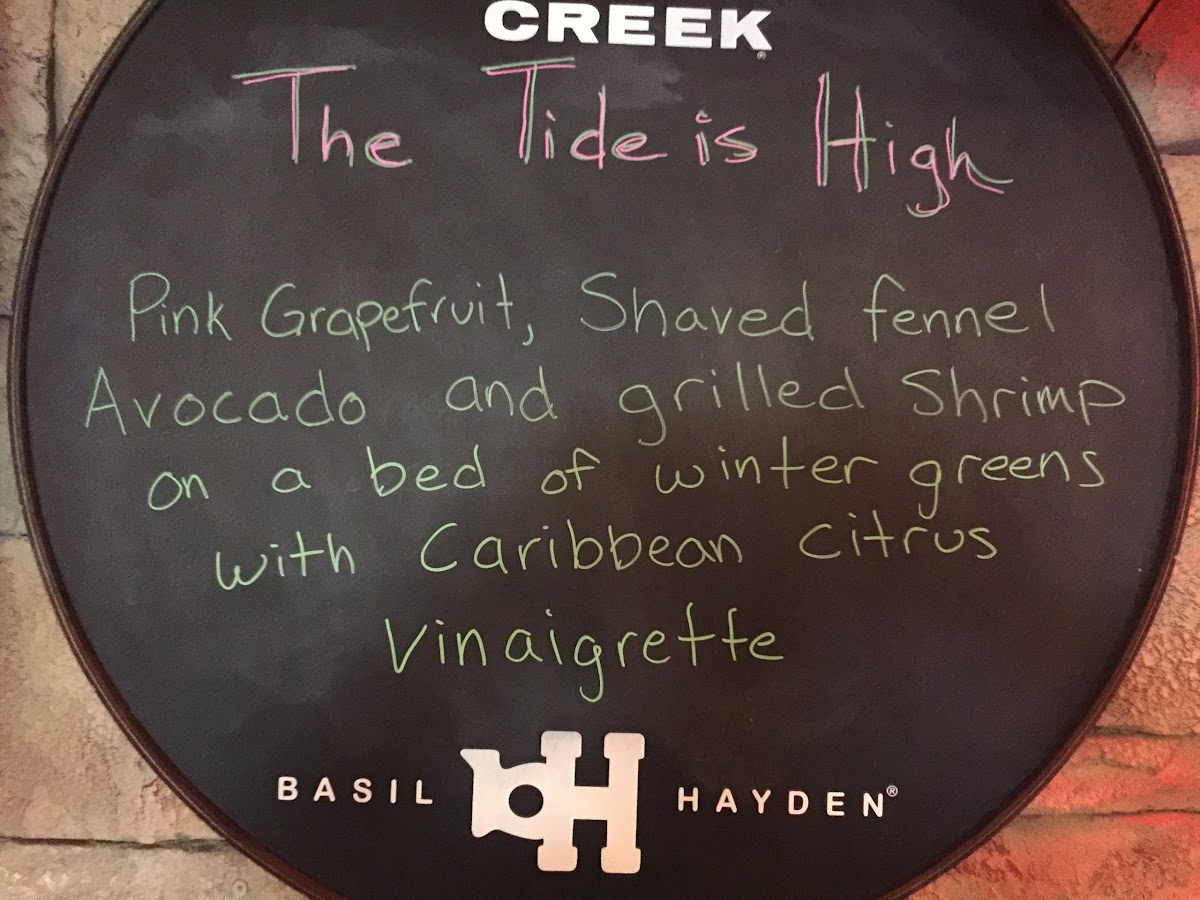 CREEK®
The Tide is High
Pink Grapefruit, Shaved fennel
Avocado and grilled Shrimp
on a bed of winter greens
with Caribbean Citrus
Vinaigrette
BASIL bH HAYDEN®